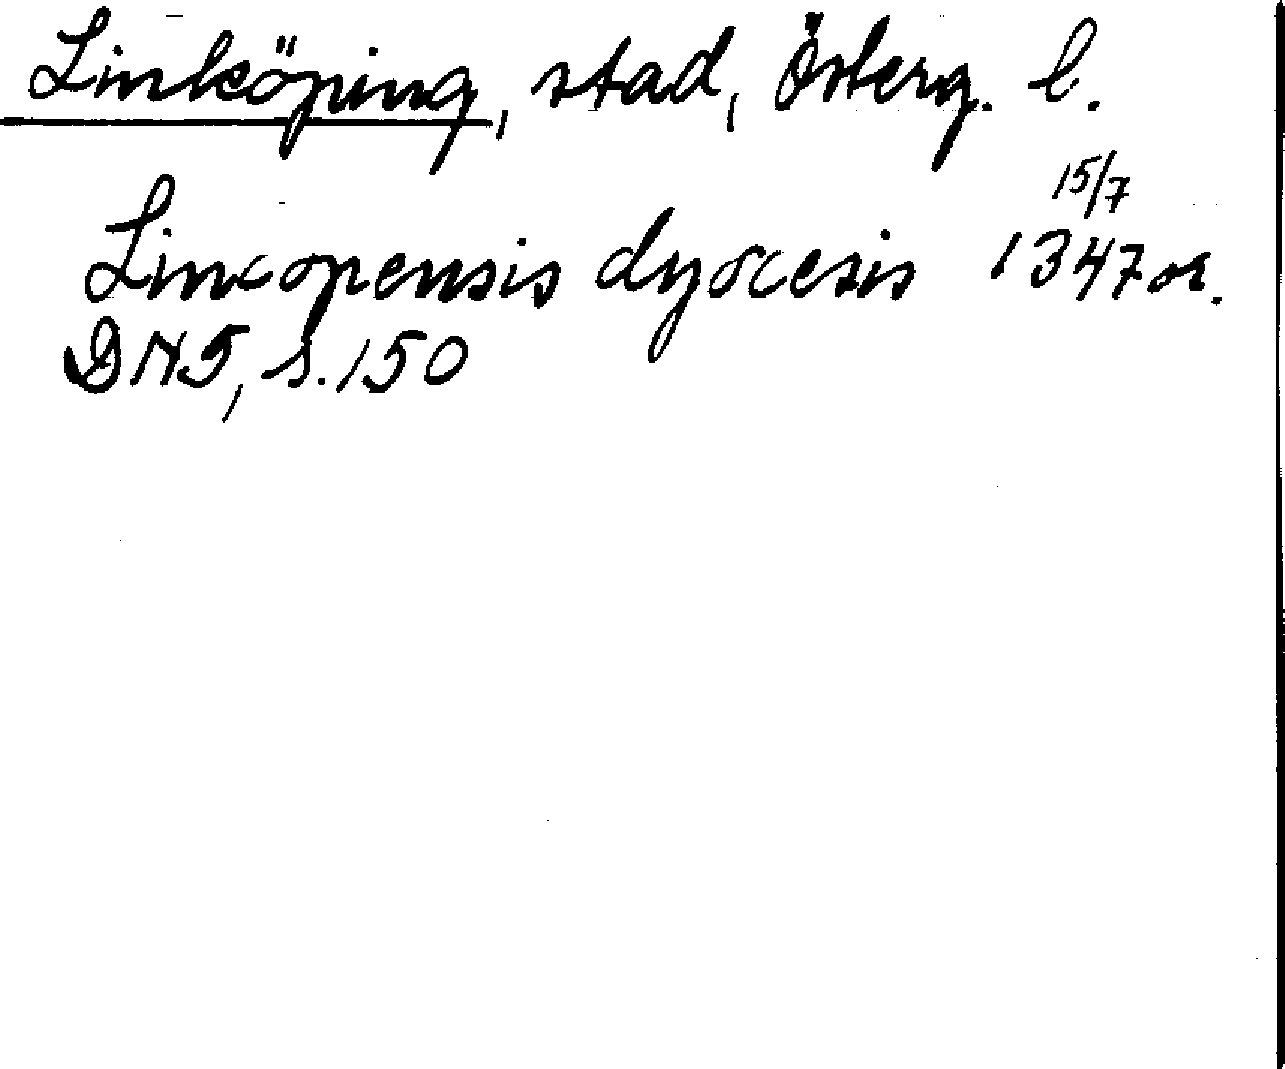 Linköping, stad, Österg. l.
Lincopensis dyocesis 15/7 1347 or.
DN5, s. 150